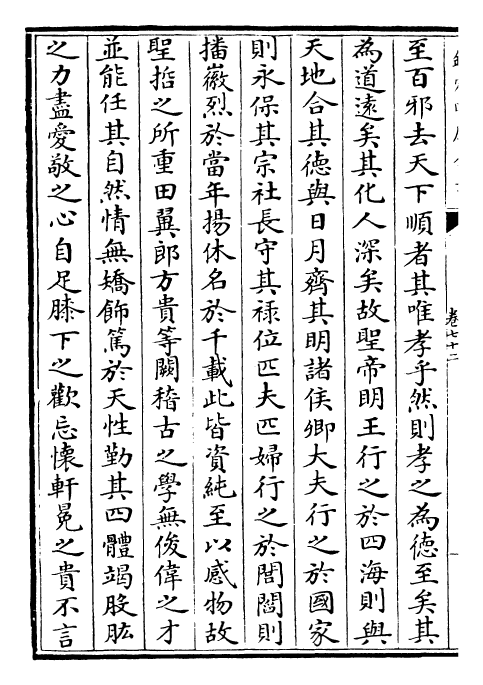 至百邪去天下順者其唯孝乎然則孝之為德至矣其
為道遠矣其化人深矣故聖帝明王行之於四海則與
天地合其德與日月齊其明諸侯卿大夫行之於國家
則永保其宗社長守其祿位匹夫匹婦行之於閭閻則
播徽烈於當年揚休名於千載此皆資純至以感物故
聖哲之所重田翼郎方貴等闕稽古之學無俊偉之才
並能任其自然情無矯飾篤於天性勤其四體竭股肱
之力盡愛敬之心自足膝下之歡忘懷軒冕之貴不言
卷七十二